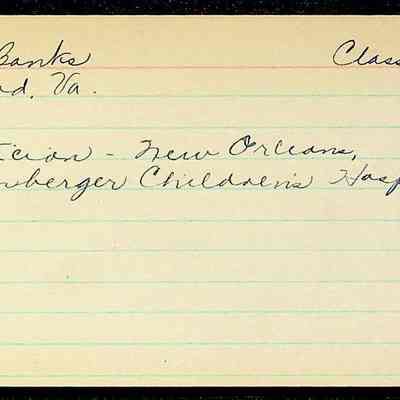 Banks Class
nd, Va.
tician - New Orleans,
nberger Children's Hosp